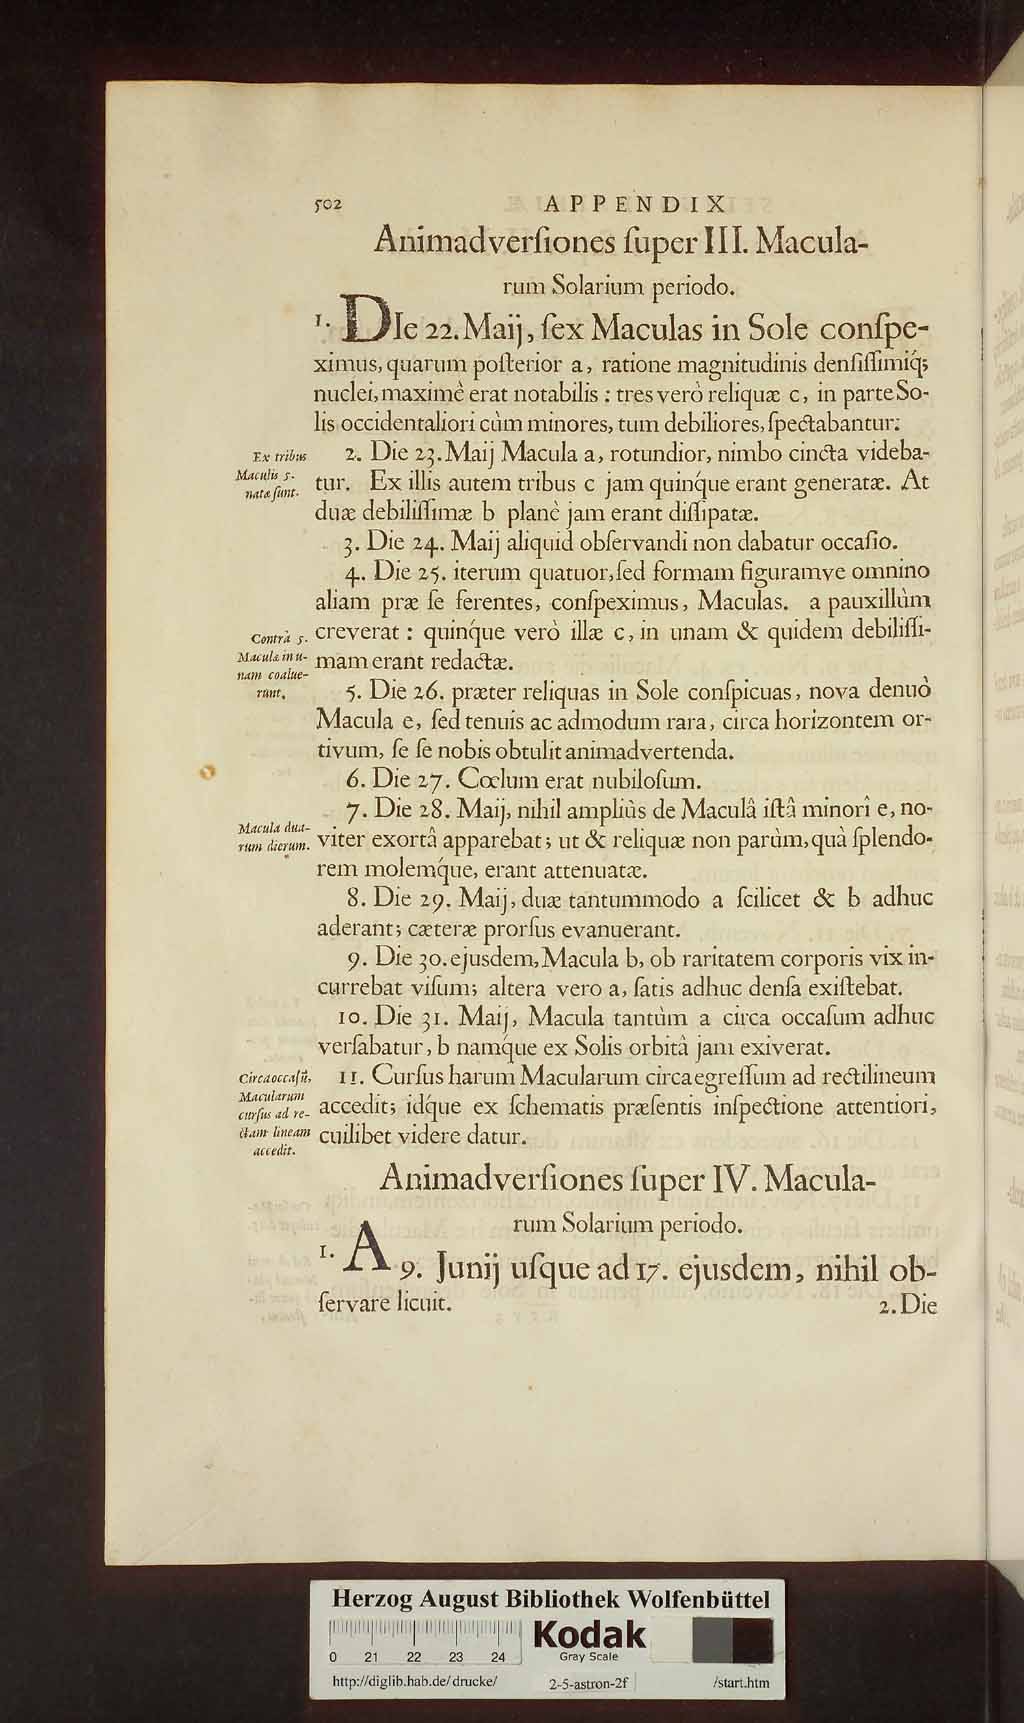 502 APPENDIX
Animadverſiones ſuper III. Macula-
rum Solarium periodo.
1. DIe 22. Maij, ſex Maculas in Sole conſpe-
ximus, quarum poſterior a, ratione magnitudinis denſiſſimiq́;
nuclei, maximè erat notabilis: tres verò reliquæ c, in parte So-
lis occidentaliori cùm minores, tum debiliores, ſpectabantur:
Ex tribus
Maculis 5.
natæ ſunt.
2. Die 23. Maij Macula a, rotundior, nimbo cincta videba-
tur. Ex illis autem tribus c jam quinq́ue erant generatæ. At
duæ debiliſſimæ b planè jam erant diſſipatæ.
3. Die 24. Maij aliquid obſervandi non dabatur occaſio.
4. Die 25. iterum quatuor, ſed formam figuramve omnino
aliam præ ſe ferentes, conſpeximus, Maculas. a pauxillùm
Contrà 5.
Maculæ in u-
nam coalue-
runt.
creverat: quinq́ue verò illæ c, in unam & quidem debiliſſi-
mam erant redactæ.
5. Die 26. præter reliquas in Sole conſpicuas, nova denuò
Macula e, ſed tenuis ac admodum rara, circa horizontem or-
tivum, ſe ſe nobis obtulit animadvertenda.
6. Die 27. Cœlum erat nubiloſum.
7. Die 28. Maij, nihil ampliùs de Maculâ iſtâ minori e, no-
Macula dua-
rum dierum.
viter exortâ apparebat; ut & reliquæ non parùm, quà ſplendo-
rem molemq́ue, erant attenuatæ.
8. Die 29. Maij, duæ tantummodo a ſcilicet & b adhuc
aderant; cæteræ prorſus evanuerant.
9. Die 30. ejusdem, Macula b, ob raritatem corporis vix in-
currebat viſum; altera vero a, ſatis adhuc denſa exiſtebat.
10. Die 31. Maij, Macula tantùm a circa occaſum adhuc
verſabatur, b namq́ue ex Solis orbitâ jam exiverat.
Circa occaſũ,
Macularum
curſus ad re-
ctam lineam
accedit.
11. Curſus harum Macularum circa egreſſum ad rectilineum
accedit; idq́ue ex ſchematis præſentis inſpectione attentiori,
cuilibet videre datur.
Animadverſiones ſuper IV. Macula-
rum Solarium periodo.
1. A 9. Junij uſque ad 17. ejusdem, nihil ob-
ſervare licuit.
2. Die
Herzog August Bibliothek Wolfenbüttel
Kodak
Gray Scale
0 21 22 23 24
http://diglib.hab.de/drucke/ 2-5-astron-2f /start.htm